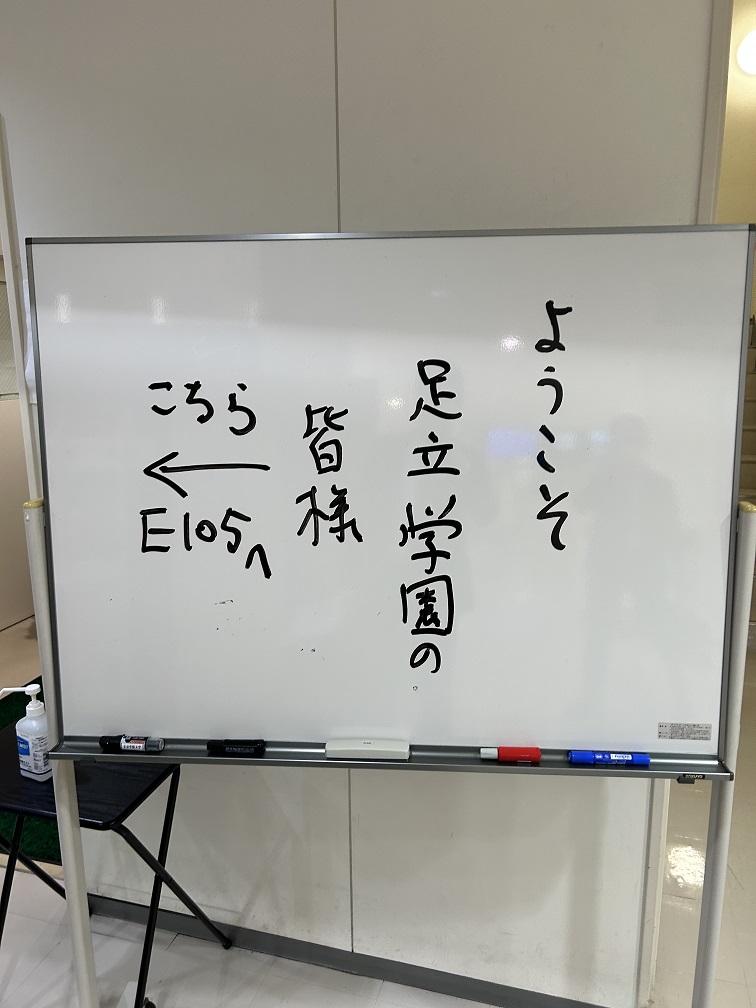 ようこそ
足立学園の
皆様
こちら
←
E105へ